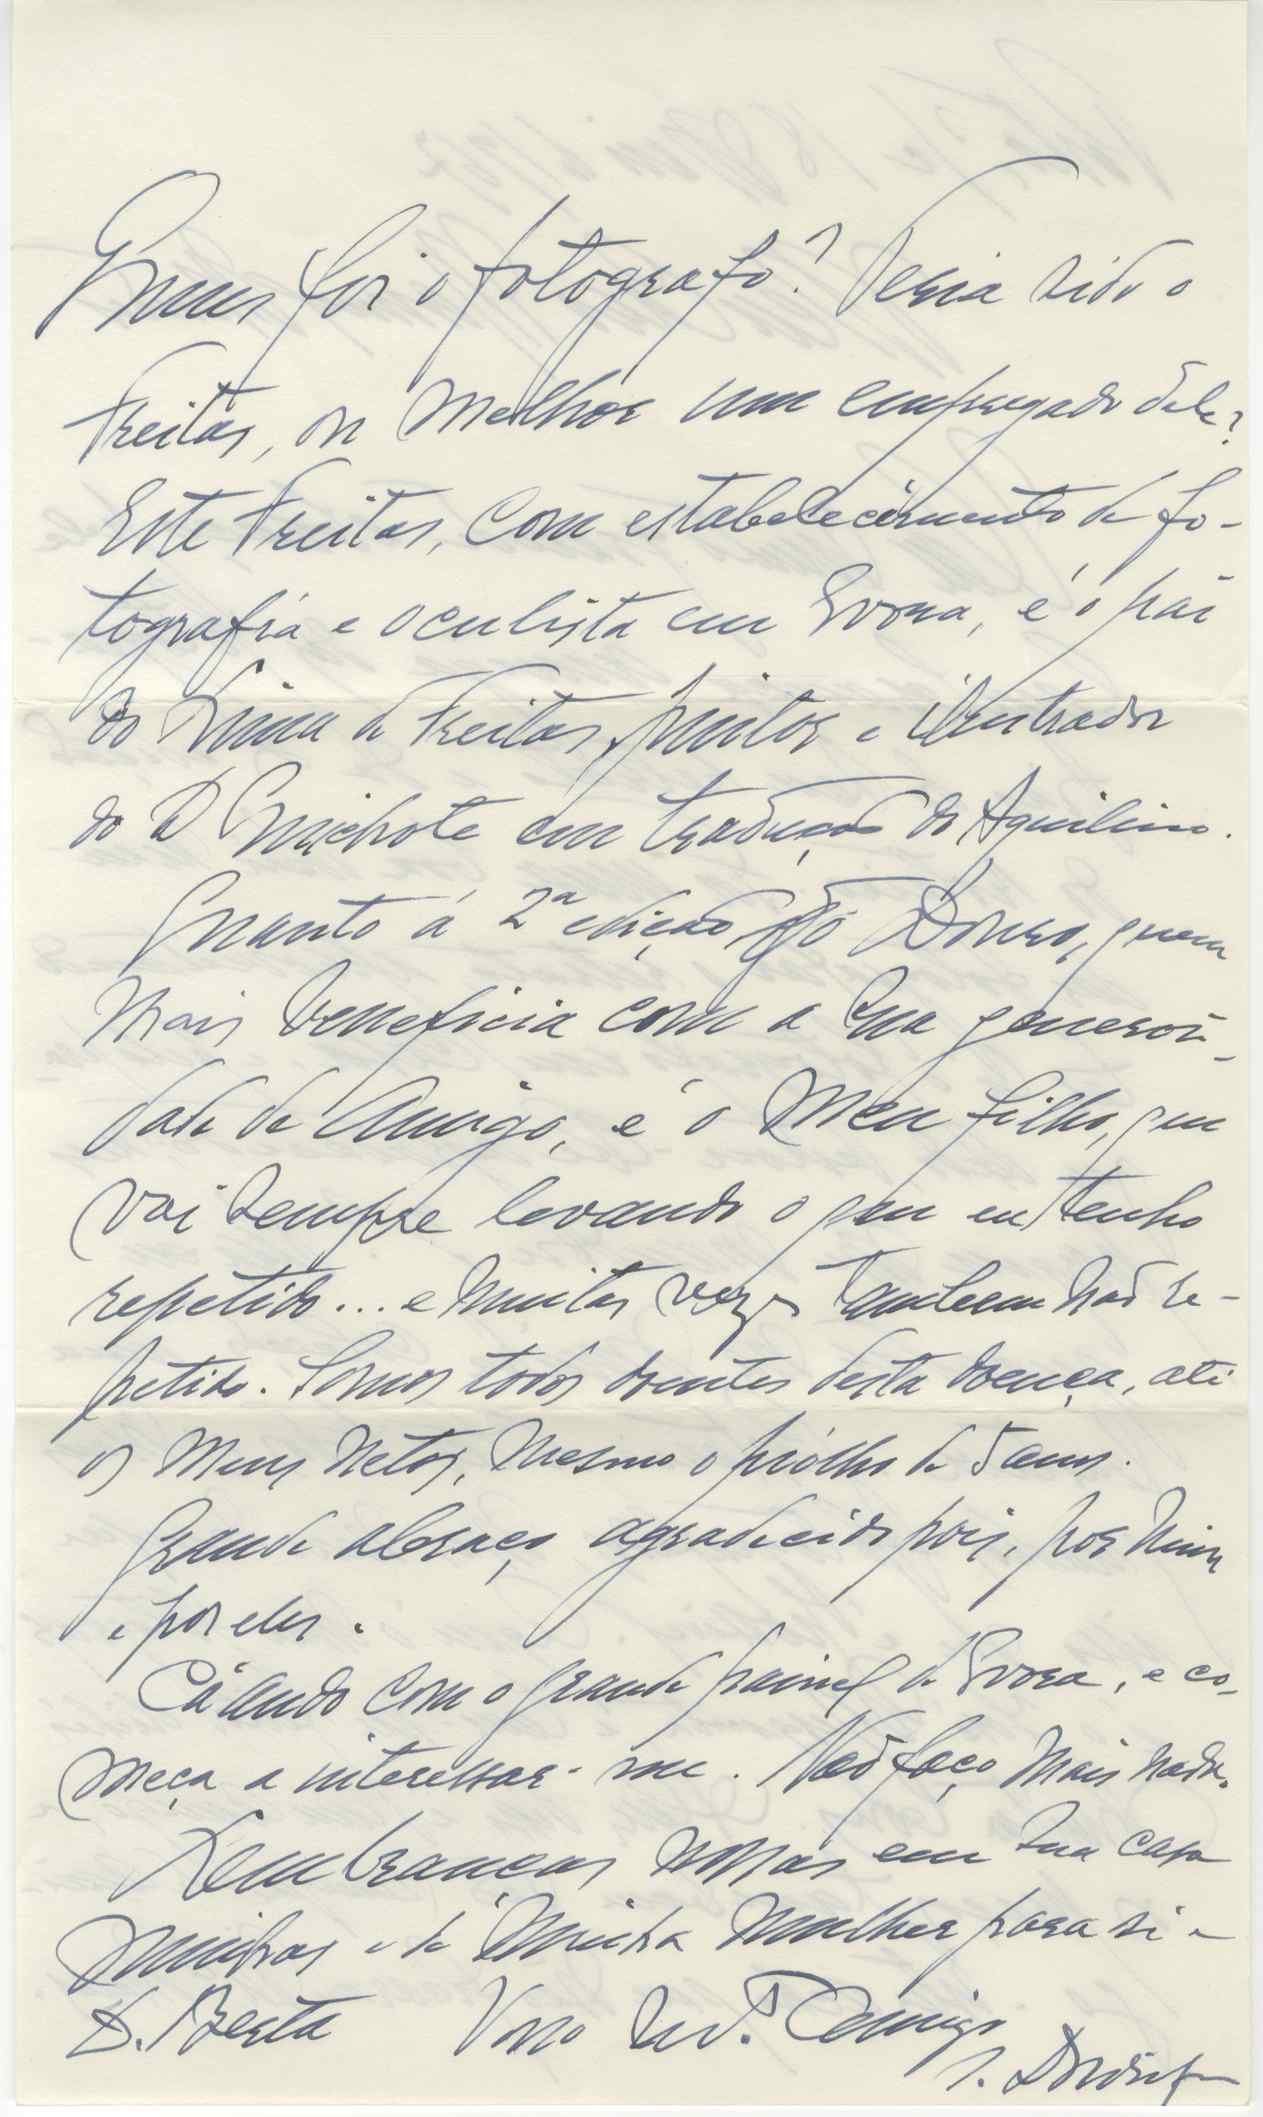 Quem foi o fotografo? Teria sido o
Freitas, ou melhor um empregado dele?
Este Freitas, com estabelecimento de fo-
tografia e oculista em Evora, é o pai
do Lima de Freitas, pintor e ilustrador
do D Quichote em tradução do Aquilino.
Quanto á 2ª edição do Douro, quem
mais beneficia com a sua generosi-
dade de Amigo, é o meu filho, que
vai sempre levando o que eu tenho
repetido... e muitas vezes tambem não re-
petido. Somos todos doentes desta doença, até
os meus netos, mesmo o piolho de 5 anos.
Grande abraço agradecido pois, por mim
e por eles.
Cá ando com o grande painel de Evora, e co-
meça a interessar-me. Não faço mais nada.
Lembranças nossas em sua casa
minhas e de minha mulher para si e
D. Berta Vosso Amigo